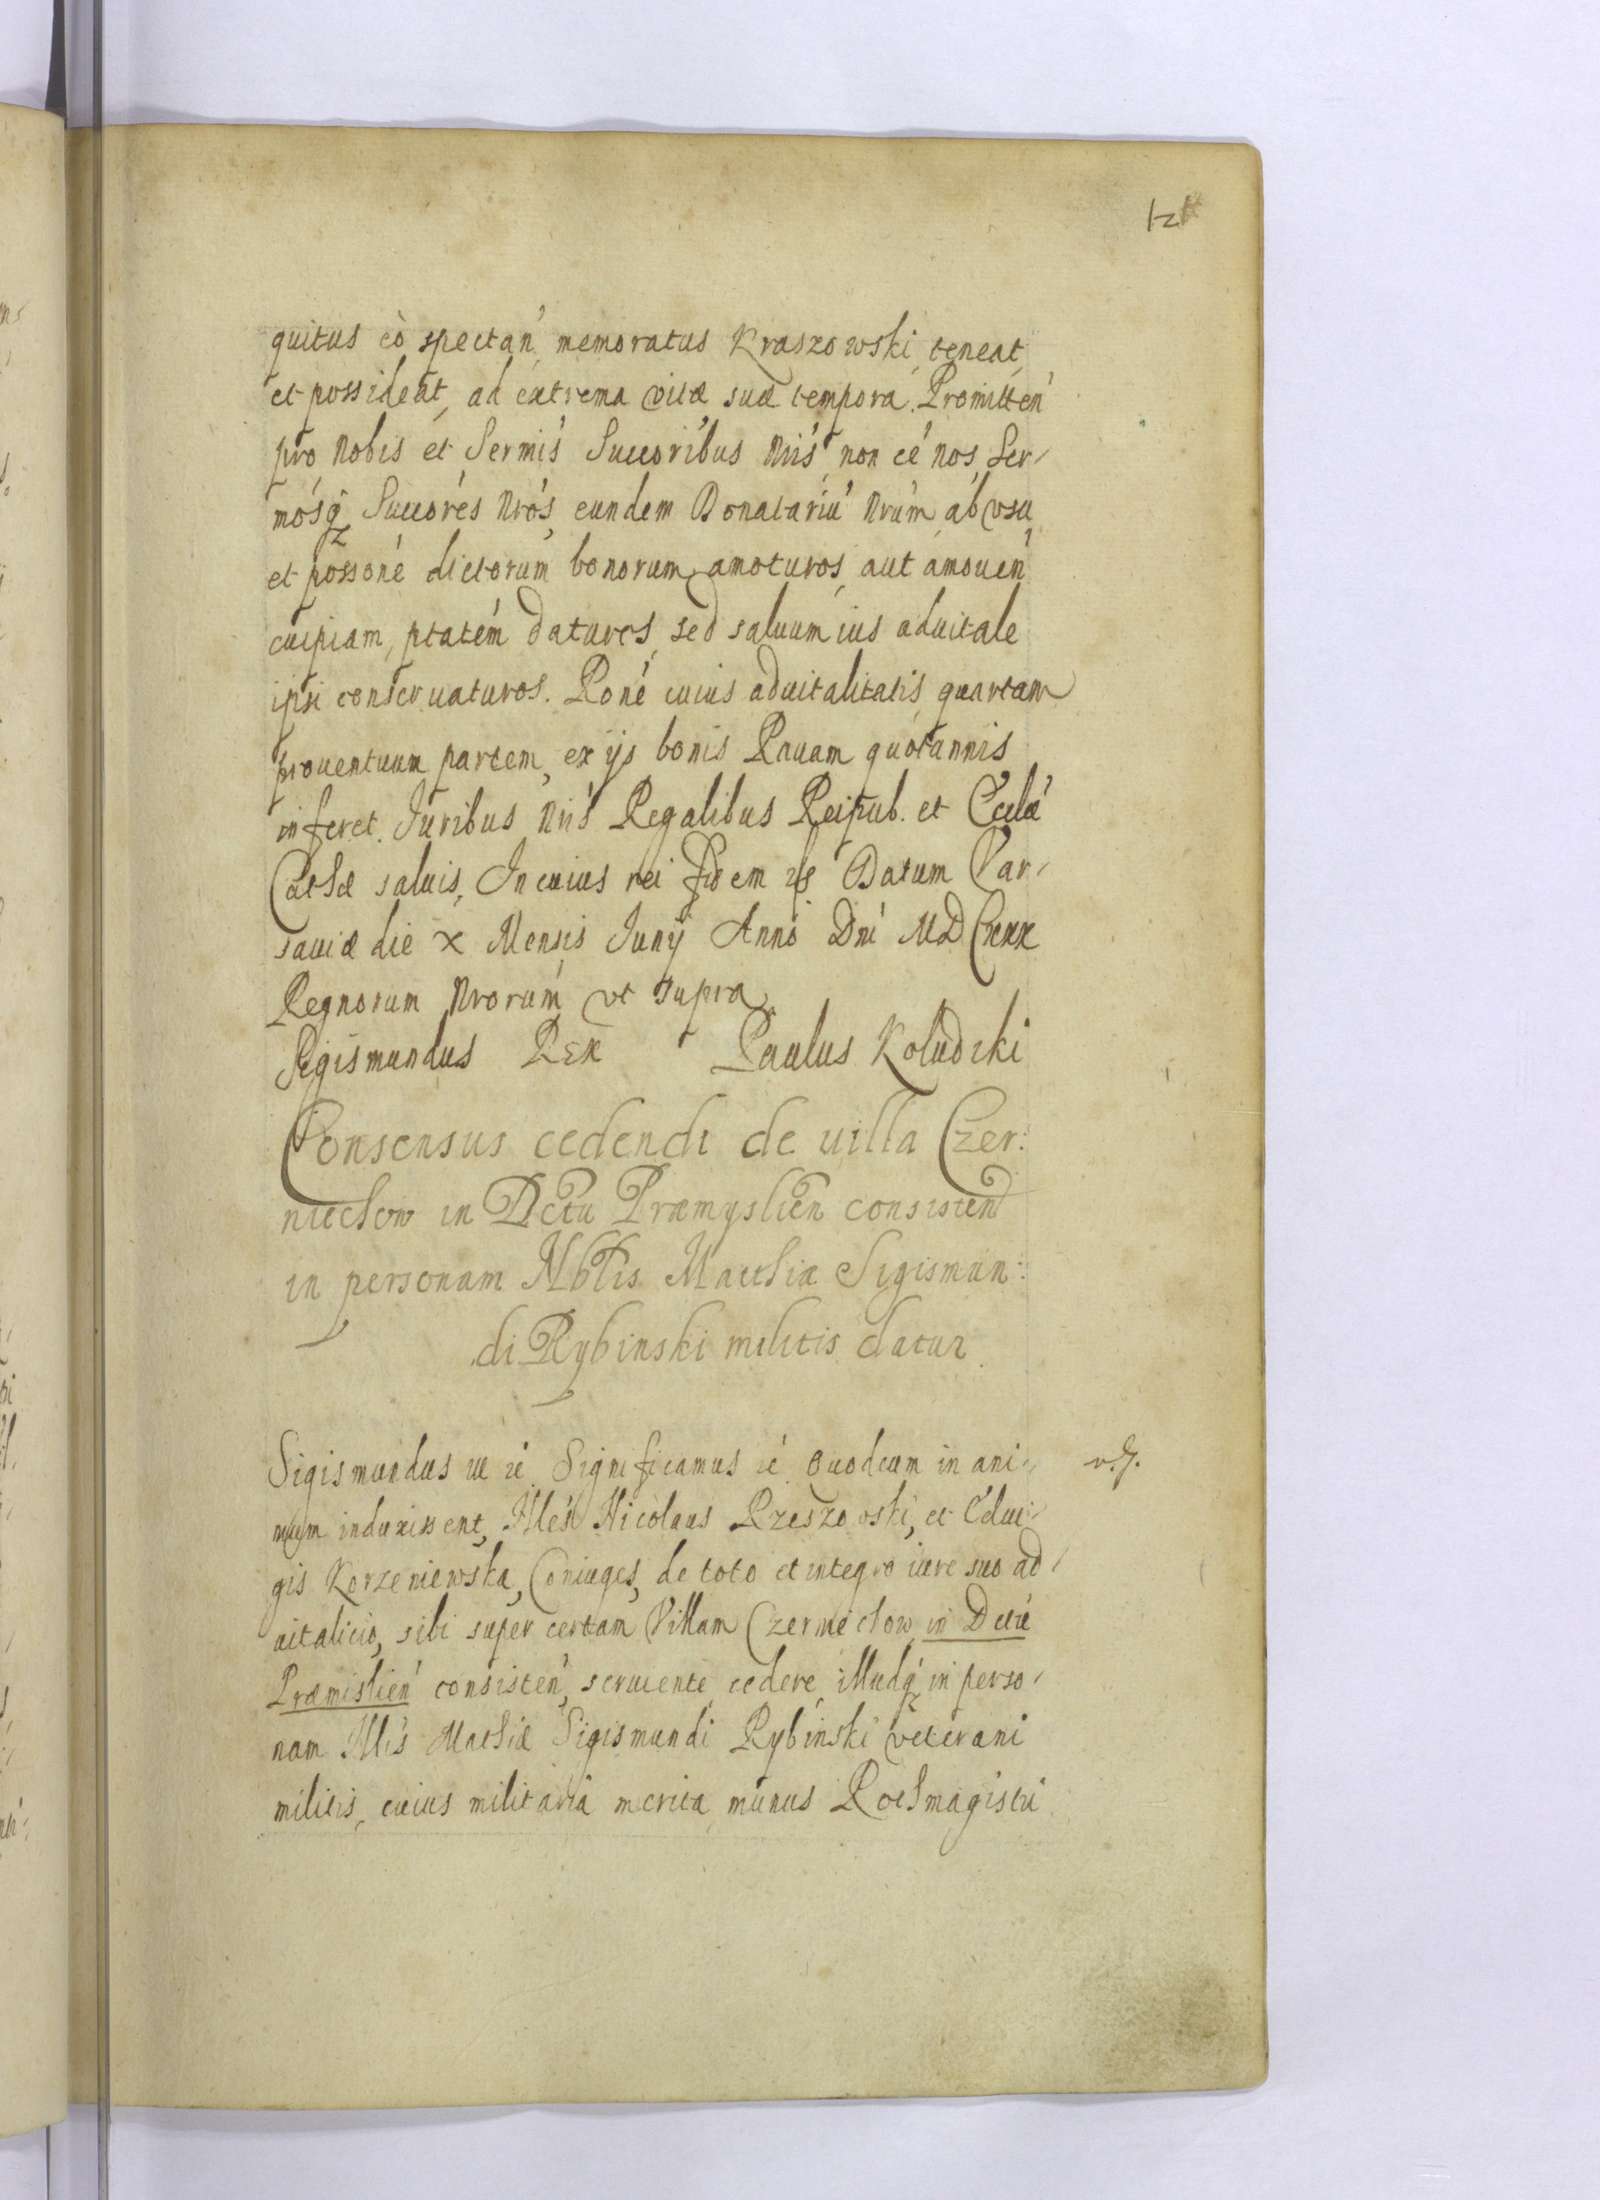 12
quitus eò spectan̄ memoratus Kraszowski teneat
et possideat, ad extrema vitæ suæ tempora. Promitten̄
pro Nobis et Sermis Succoribus Nris non cé nos, Ser-
mosq̢ Succores Nros, eundem Donatariū Nrum ab vsu
et possoné dictorum bonorum amoturos, aut amouen̄
cuipiam, ptatem daturos, sed saluum ius aduitale
ipsi conseruaturos. Roné cuius aduitalitatis quartam
prouentuum partem, ex ijs bonis Rauam quotannis
inferet. Juribus Nris Regalibus Reipub. et Ecclæ
Cathæ saluis, In cuius rei fidem Datum Var-
sauiæ die X Mensis Junij Anno Dni MDCXXX
Regnorum Nrorum vt supra
Sigismundus Rex Paulus Koludzki
Consensus cedendi de uilla Czer:
niechow in Dctu Præmyslien̄ consisten̄
in personam Nblis Matthiæ Sigismun:
di Rybinski militis datur
Sigismundus Significamus Quod cum in ani-
n. 7.
mum induxissent, Nicolaus Rzeszowski, et Edui-
gis Korzeniewska, Coniuges, de toto et integro iure suo ad-
uitalicio, sibi super certam Villam Czerniechow in Dctu
Præmislien̄ consisten̄, seruiente cedere, illudq̢ in perso-
nam Mathiæ Sigismundi Rybinski veterani
militis, cuius militaria merita, munus Rothmagistri